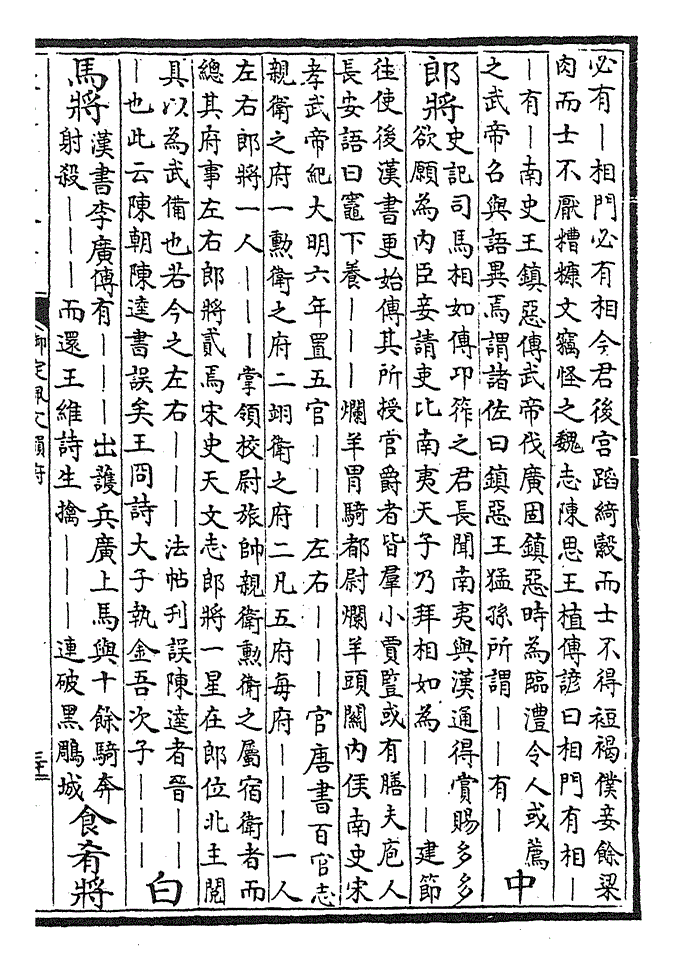 必有｜相門必有相今君後宮蹈綺縠而士不得裋褐僕妾餘粱
肉而士不厭糟糠文竊怪之魏志陳思王植傳諺曰相門有相｜
｜有｜南史王鎮惡傳武帝伐廣固鎮惡時為臨澧令人或薦
之武帝召與語異焉謂諸佐曰鎮惡王猛孫所謂｜｜有｜
中
郎將
史記司馬相如傳卭筰之君長聞南夷與漢通得賞賜多多
欲願為內臣妾請吏比南夷天子乃拜相如為｜｜｜建節
往使後漢書更始傳其所授官爵者皆羣小賈豎或有膳夫庖人
長安語曰竈下養｜｜｜爛羊胃騎都尉爛羊頭關內侯南史宋
孝武帝紀大明六年置五官｜｜｜左右｜｜｜官唐書百官志
親衛之府一勳衛之府二翊衛之府二凡五府每府｜｜｜一人
左右郎將一人｜｜｜掌領校尉旅帥親衛勳衛之屬宿衛者而
總其府事左右郎將貳焉宋史天文志郎將一星在郎位北主閱
具以為武備也若今之左右｜｜｜法帖刊誤陳逵者晉｜｜
｜也此云陳朝陳逵書誤矣王冏詩大子執金吾次子｜｜｜
白
馬將
漢書李廣傳有｜｜｜出護兵廣上馬與十餘騎奔
射殺｜｜｜而還王維詩生擒｜｜｜連破黑鵰城
食肴將
御定佩文韻府